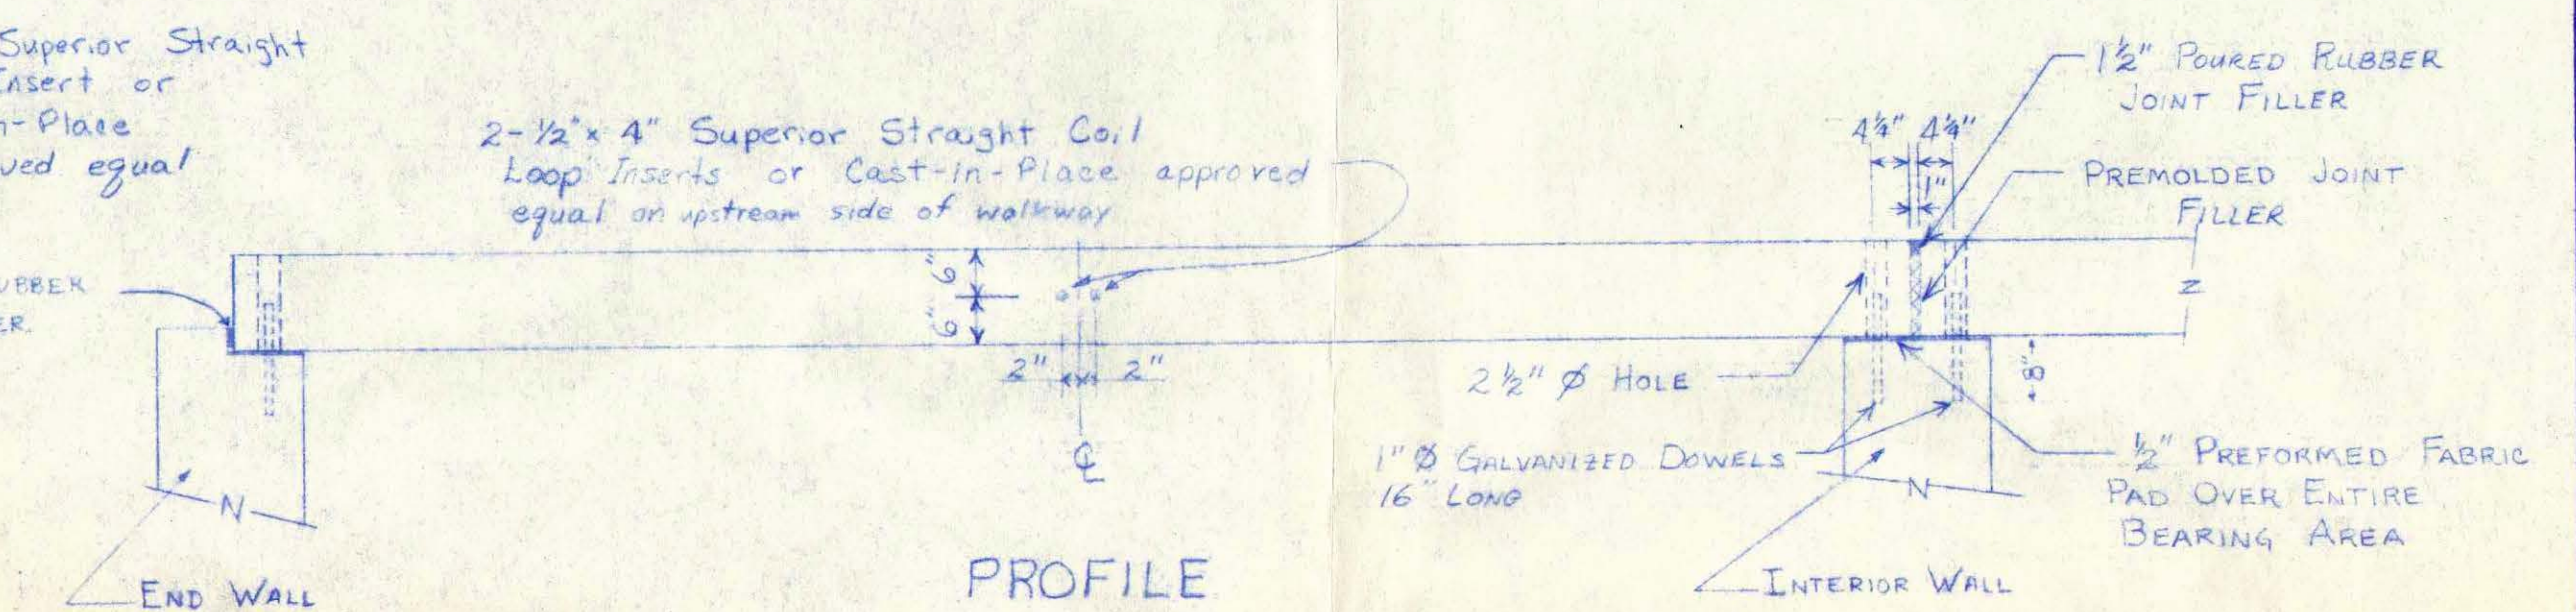 Superior Straight
Insert or
n-Place
ved equal
2-½"x 4" Superior Straight Coil
Loop Inserts or Cast-in-Place approved
equal on upstream side of walkway
1½" POURED RUBBER
JOINT FILLER
4¼" 4¼"
1"
PREMOLDED JOINT
FILLER
UBBER
ER
6"
6"
2" 2"
℄
2½" Ø HOLE
8"
1" Ø GALVANIZED DOWELS
16" LONG
½" PREFORMED FABRIC
PAD OVER ENTIRE
BEARING AREA
END WALL
PROFILE
INTERIOR WALL